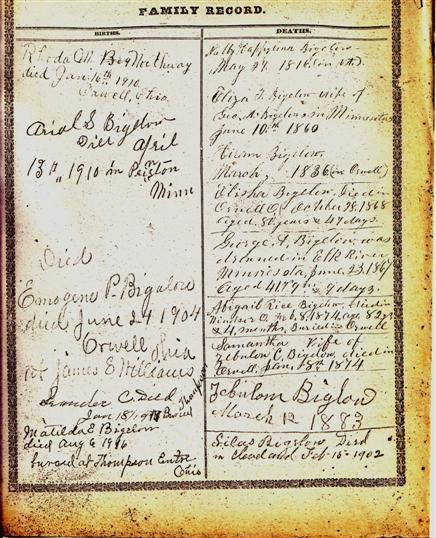 FAMILY RECORD.
BIRTHS.
Rhoda M. Big Northway
died Jan. 16th 1910
Orwell, Ohio
Arial S Bigelow
Died April
13th, 1910 in
Minn
Died
Emogene P. Bigalow
died June 24 1904
Orwell Ohio
of James E Williams
Leander C. Died
Jan 18/1913 Buried Thompson
Matilda E Bigelow
died Aug 6 1916
buried at Thompson Centre
Ohio
DEATHS.
Bigelow
May 27. 1816. (in Vt.)
Eliza F. Bigelow wife of
Geo. A. Bigelow in Minnesota
June 10th 1860
Hiram Bigelow,
March, 1836 (in Orwell)
Elisha Bigelow, died in
Orwell O. October 28, 1868
aged. 81 years & 47 days.
George A. Bigelow was
drowned in Elk River
Minnisota, June. 23. 1867
aged 41 & 7 days.
Abigail Rice Bigelow, died in
Windsor O. Feb. 8, 1874, age. 82 yr
& 4 months, buried in Orwell
Samantha Wife of
Zebulon C. Bigelow, died in
Orwell, Jan. 18th 1874
Zebulom Biglow
March 12 1883
Silas Bigelow Died
in Cleveland Feb-15-1902